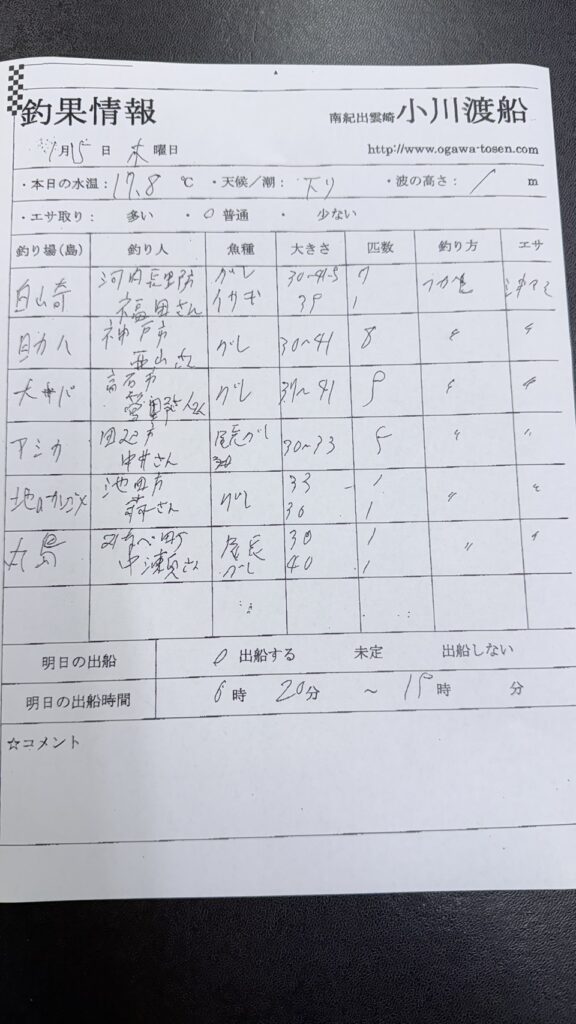 釣果情報 南紀出雲崎 小川渡船
1月15日 木曜日 http://www.ogawa-tosen.com
・本日の水温: 17.8 ℃ ・天候/潮: 下り ・波の高さ: 1 m
・エサ取り: 多い ・ 0 普通 ・ 少ない
釣り場(島) 釣り人 魚種 大きさ 匹数 釣り方 エサ
河内長野市 グレ 30~41.5 7
福田さん イサギ 39 1
神戸市
グレ 30~41 8 〃 〃
西山さん
高石市
グレ 〃 〃
アシカ 田辺市 尾長グレ 30~33 5 〃 〃
中井さん
池田市 33 1
グレ 〃 〃
さん 30 1
みなべ町 尾長 30 1
丸島 〃 〃
中瀬さん グレ 40 1
明日の出船 0 出船する 未定 出船しない
明日の出船時間 6時 20分 ~ 15時 分
☆コメント